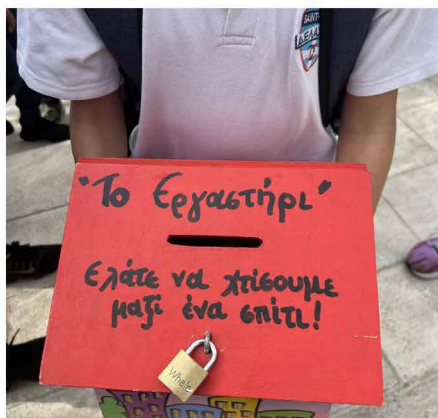 SAINT
ΔΕΛΑ
"Το Εργαστήρι"
Ελάτε να χτίσουμε
μαζί ένα σπίτι!
Whale